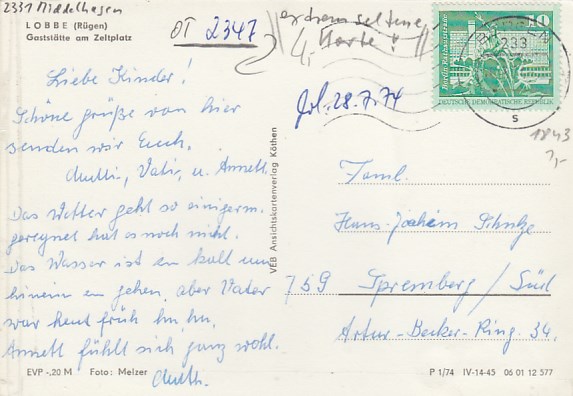 2331 Middelhagen
LOBBE (Rügen)
Gaststätte am Zeltplatz
OT 2347
extrem seltene
4,- Karte!
10
DEUTSCHE DEMOKRATISCHE REPUBLIK
233
s
1843
7,-
Gol. 28.7.74
Liebe Kinder!
Schöne grüße von hier
senden wir Euch.
Mutti, Vati, u. Annett.
Das Wetter geht so einigerm.
geregnet hat es noch nicht.
Das Wasser ist zu kalt um
hinein zu gehen, aber Vater
war heut früh
Annett fühlt sich ganz wohl.
Mutti.
VEB Ansichtskartenverlag Köthen
Faml.
Hans-Joachim Schulze
759 Spremberg / Süd
Artur-Becker-Ring. 34.
EVP -.20 M Foto: Melzer
P 1/74 IV-14-45 06 01 12 577